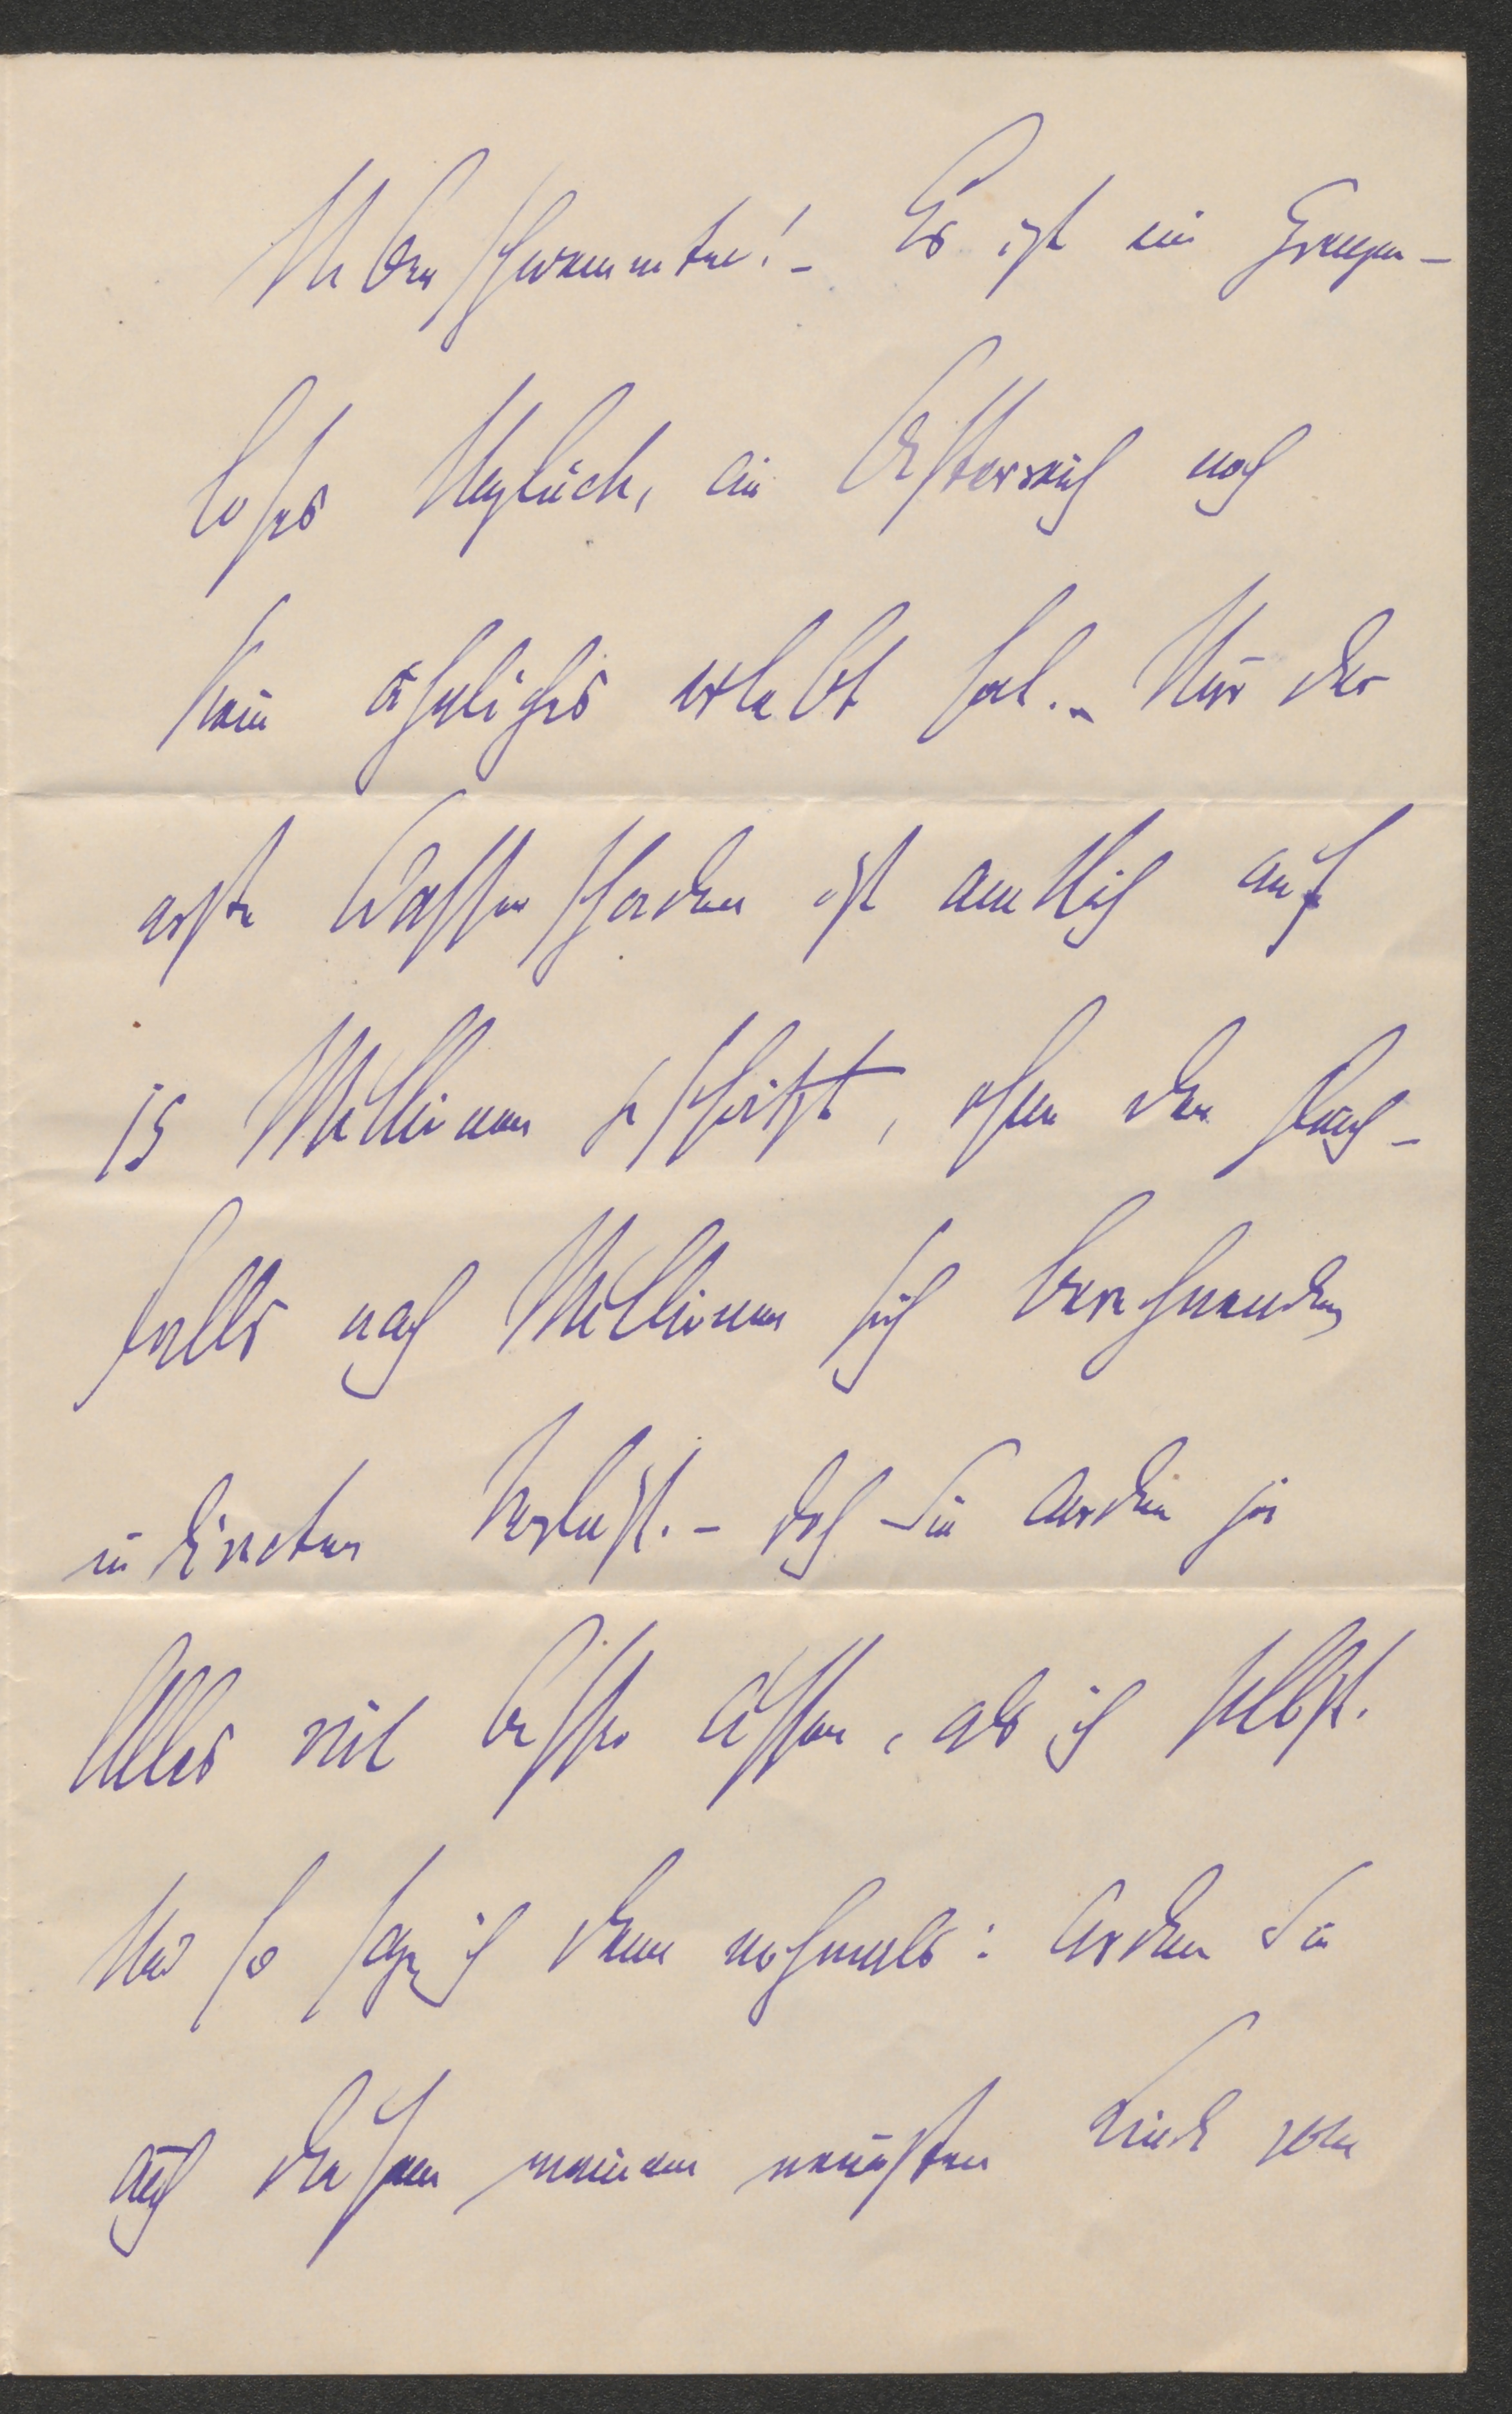 Überschwemmten! - Es ist ein Grenzen-
loses Unglück, wie Österreich noch
kein ähnliches erlebt hat. - Nur der
erste Wasserschaden ist amtlich auf
15 Millionen geschätzt, ohne den gleich-
falls nach Millionen sich berechnenden
indirecten Verlust. - doch Sie werden ja
Alles viel besser wissen, als ich selbst.
Und so sage ich denn nochmals: werden Sie
auch diesem meinem neuesten Kinde